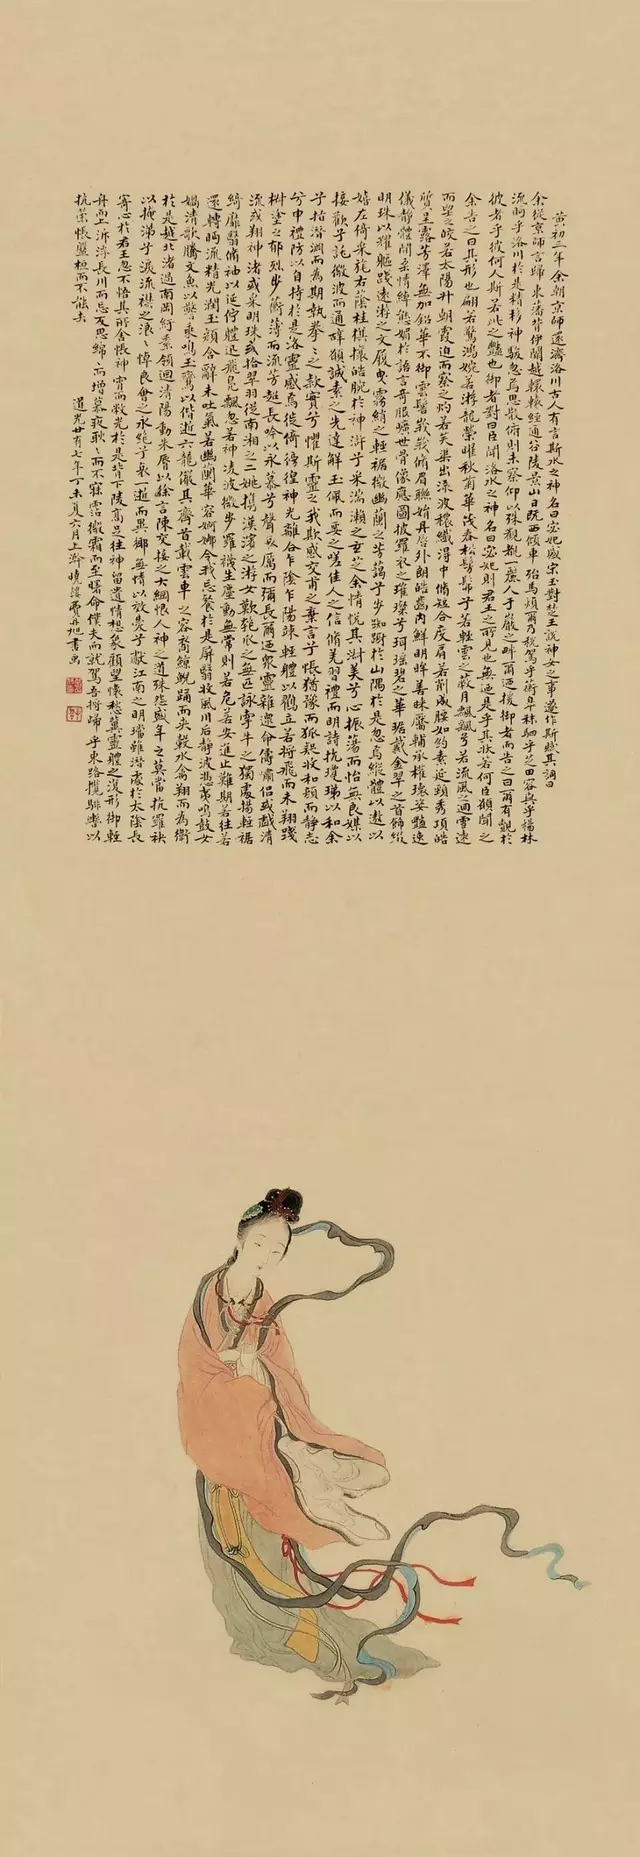 黃初三年余朝京師還濟洛川古人有言斯水之神名曰宓妃感宋玉對楚王說神女之事遂作斯賦其詞曰
余從京師言歸東藩背伊闕越轘轅經通谷陵景山日既西傾車殆馬煩爾乃稅駕乎蘅皋秣駟乎芝田容與乎楊林
流眄乎洛川於是精移神駭忽焉思散俯則未察仰以殊觀覩一麗人于巖之畔爾迺援御者而告之曰爾有覿於
彼者乎彼何人斯若此之豔也御者對曰臣聞洛水之神名曰宓妃則君王之所見也無迺是乎其狀若何臣願聞之
余告之曰其形也翩若驚鴻婉若游龍榮曜秋菊華茂春松髣髴兮若輕雲之蔽月飄飄兮若流風之迴雪遠
而望之皎若太陽升朝霞迫而察之灼若芙蕖出淥波穠纖得中脩短合度肩若削成腰如約素延頸秀項皓
質呈露芳澤無加鉛華不御雲髻峩峩脩眉聯娟丹唇外朗皓齒內鮮明眸善睞靨輔承權瓌姿豔逸
儀靜體閒柔情綽態媚於語言奇服曠世骨像應圖披羅衣之璀璨兮珥瑤碧之華琚戴金翠之首飾綴
明珠以耀軀踐遠游之文履曳霧綃之輕裾微幽蘭之芳藹兮步踟躕於山隅於是忽焉縱體以遨以
嬉左倚采旄右蔭桂旗攘皓腕於神滸兮采湍瀨之玄芝余情悅其淑美兮心振蕩而怡無良媒以
接歡兮託微波而通辭願誠素之先達解玉佩而要之嗟佳人之信脩羌習禮而明詩抗瓊珶以和余
兮指潛淵而為期執拳〻之款實兮懼斯靈之我欺感交甫之棄言兮悵猶豫而狐疑收和顏而靜志
兮申禮防以自持於是洛靈感焉徙倚徬徨神光離合乍陰乍陽竦輕體以鶴立若將飛而未翔踐
椒塗之郁烈步蘅薄而流芳超長吟以永慕兮聲哀厲而彌長爾迺眾靈雜遝命儔嘯侶或戲清
流或翔神渚或采明珠或拾翠羽從南湘之二妃攜漢濱之游女歎匏瓜之無匹詠牽牛之獨處揚輕裾
綺靡翳脩袖以延佇體迅飛鳧飄忽若神凌波微步羅襪生塵動無常則若危若安進止難期若往若
還轉眄流精光潤玉顏含辭未吐氣若幽蘭華容婀娜令我忘餐於是屏翳收風川后靜波馮夷鳴鼓女
媧清歌騰文魚以警乘鳴玉鸞以偕逝六龍儼其齊首載雲車之容裔鯨鯢踊而夾轂水禽翔而為衛
於是越北渚過南岡紆素領迴清陽動朱脣以徐言陳交接之大綱恨人神之道殊怨盛年之莫當抗羅袂
以掩涕兮淚流襟之浪〻悼良會之永絕兮哀一逝而異鄉無微情以效愛兮獻江南之明璫雖潛處於太陰長
寄心於君王忽不悟其所舍悵神宵而蔽光於是背下陵高足往神留遺情想象顧望懷愁冀靈體之復形御輕
舟而上泝浮長川而忘反思綿〻而增慕夜耿〻而不寐霑微霜而至曙命僕夫而就駕吾將歸乎東路攬騑轡以
抗策悵盤桓而不能去
道光廿有七年丁未夏六月上澣曉樓費丹旭書畫